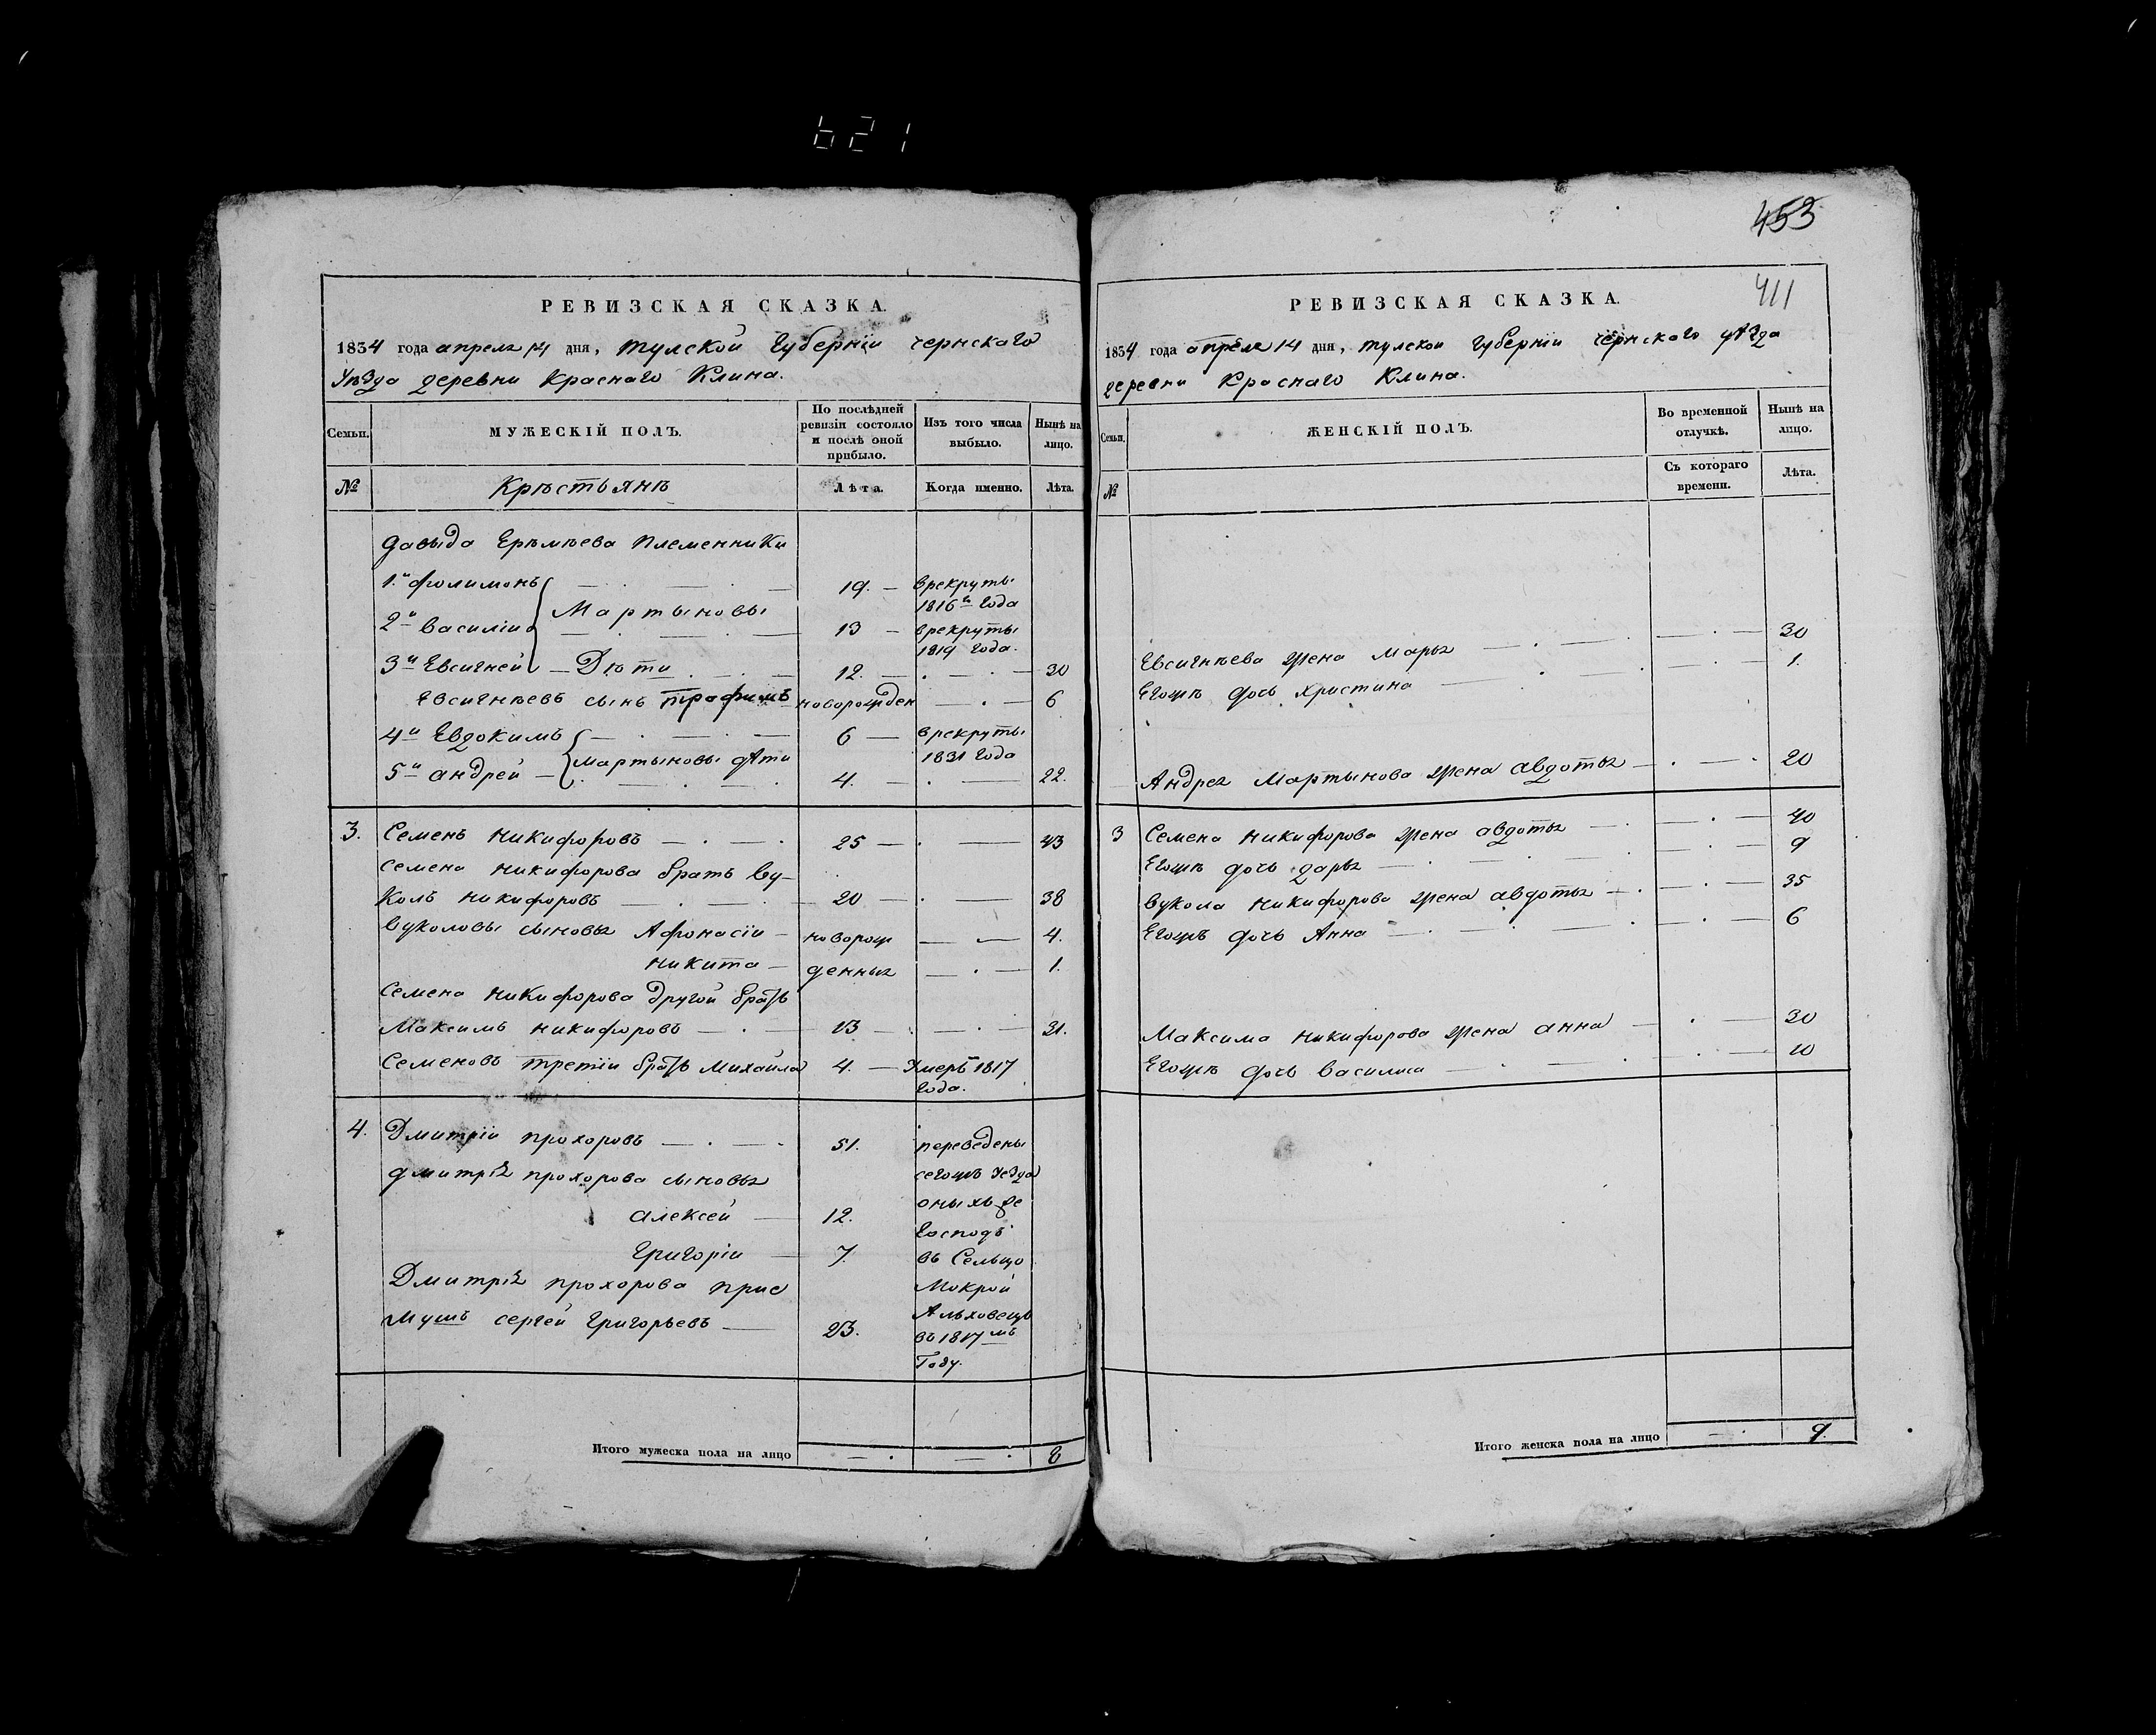 621
453
411
РЕВИЗСКАЯ СКАЗКА.
1834 года апреля 14 дня, тулской губерніи чернскаго
Уѣзда деревни Краснаго Клина.
Семьи.
МУЖЕСКІЙ ПОЛЪ.
По послѣдней
ревизіи состояло
и послѣ оной
прибыло.
Изъ того числа
выбыло.
Нынѣ на
лицо.
№
Крѣстьянѣ
Лѣта.
Когда именно.
Лѣта.
давыда Ерѣмѣева племенники
1й филимонъ 19. врекруты
1816го года
Мартыновы
2й василій 13 врекруты
1819 года.
3й Евсигней Дѣти 12. 30
Евсигнѣевъ сынъ трафимъ новорожден 6
4й Евдокимъ 6 врекруты
1831 года
5й андрей мартыновы дѣти 4. 22.
3. Семенъ никифоровъ 25 43
семена никифорова братъ ву-
колъ никифоровъ 20 38
вуколовы сыновья Афонасіи новорож 4.
никита денныя 1.
семена никифорова другой братъ
Максимъ никифоровъ 13 31.
Семеновъ третіи братъ михайла 4. Умеръ 1817
года.
4. Дмитріи прохоровъ 51. переведены
дмитрія прохорова сыновья сегожъ уезда
алексей 12. оныхъ же
господъ
григоріи 7. въ Сельцо
Дмитрія прохорова прие Мокрой
мушъ сергей григорьевъ 23. Альховецъ
въ 1817мъ
Году.
Итого мужеска пола на лицо 8
РЕВИЗСКАЯ СКАЗКА.
1834 года апреля 14 дня, тулской губерніи чернскаго уѣзда
деревни Краснаго Клина.
Семьи.
ЖЕНСКІЙ ПОЛЪ.
Во временной
отлучкѣ.
Нынѣ на
лицо.
№
Съ котораго
времени.
Лѣта.
Евсигнѣева жена марья 30
Егожѣ дочь христина 1.
Андрея Мартынова жена авдотья 20
3 Семена никифорова жена авдотья 40
Егожѣ дочь дарья 9
вукола никифорова жена авдотья 35
Егожъ дочь Анна 6
Максима никифорова жена анна 30
Егожѣ дочь василиса 10
Итого женска пола на лицо 9.